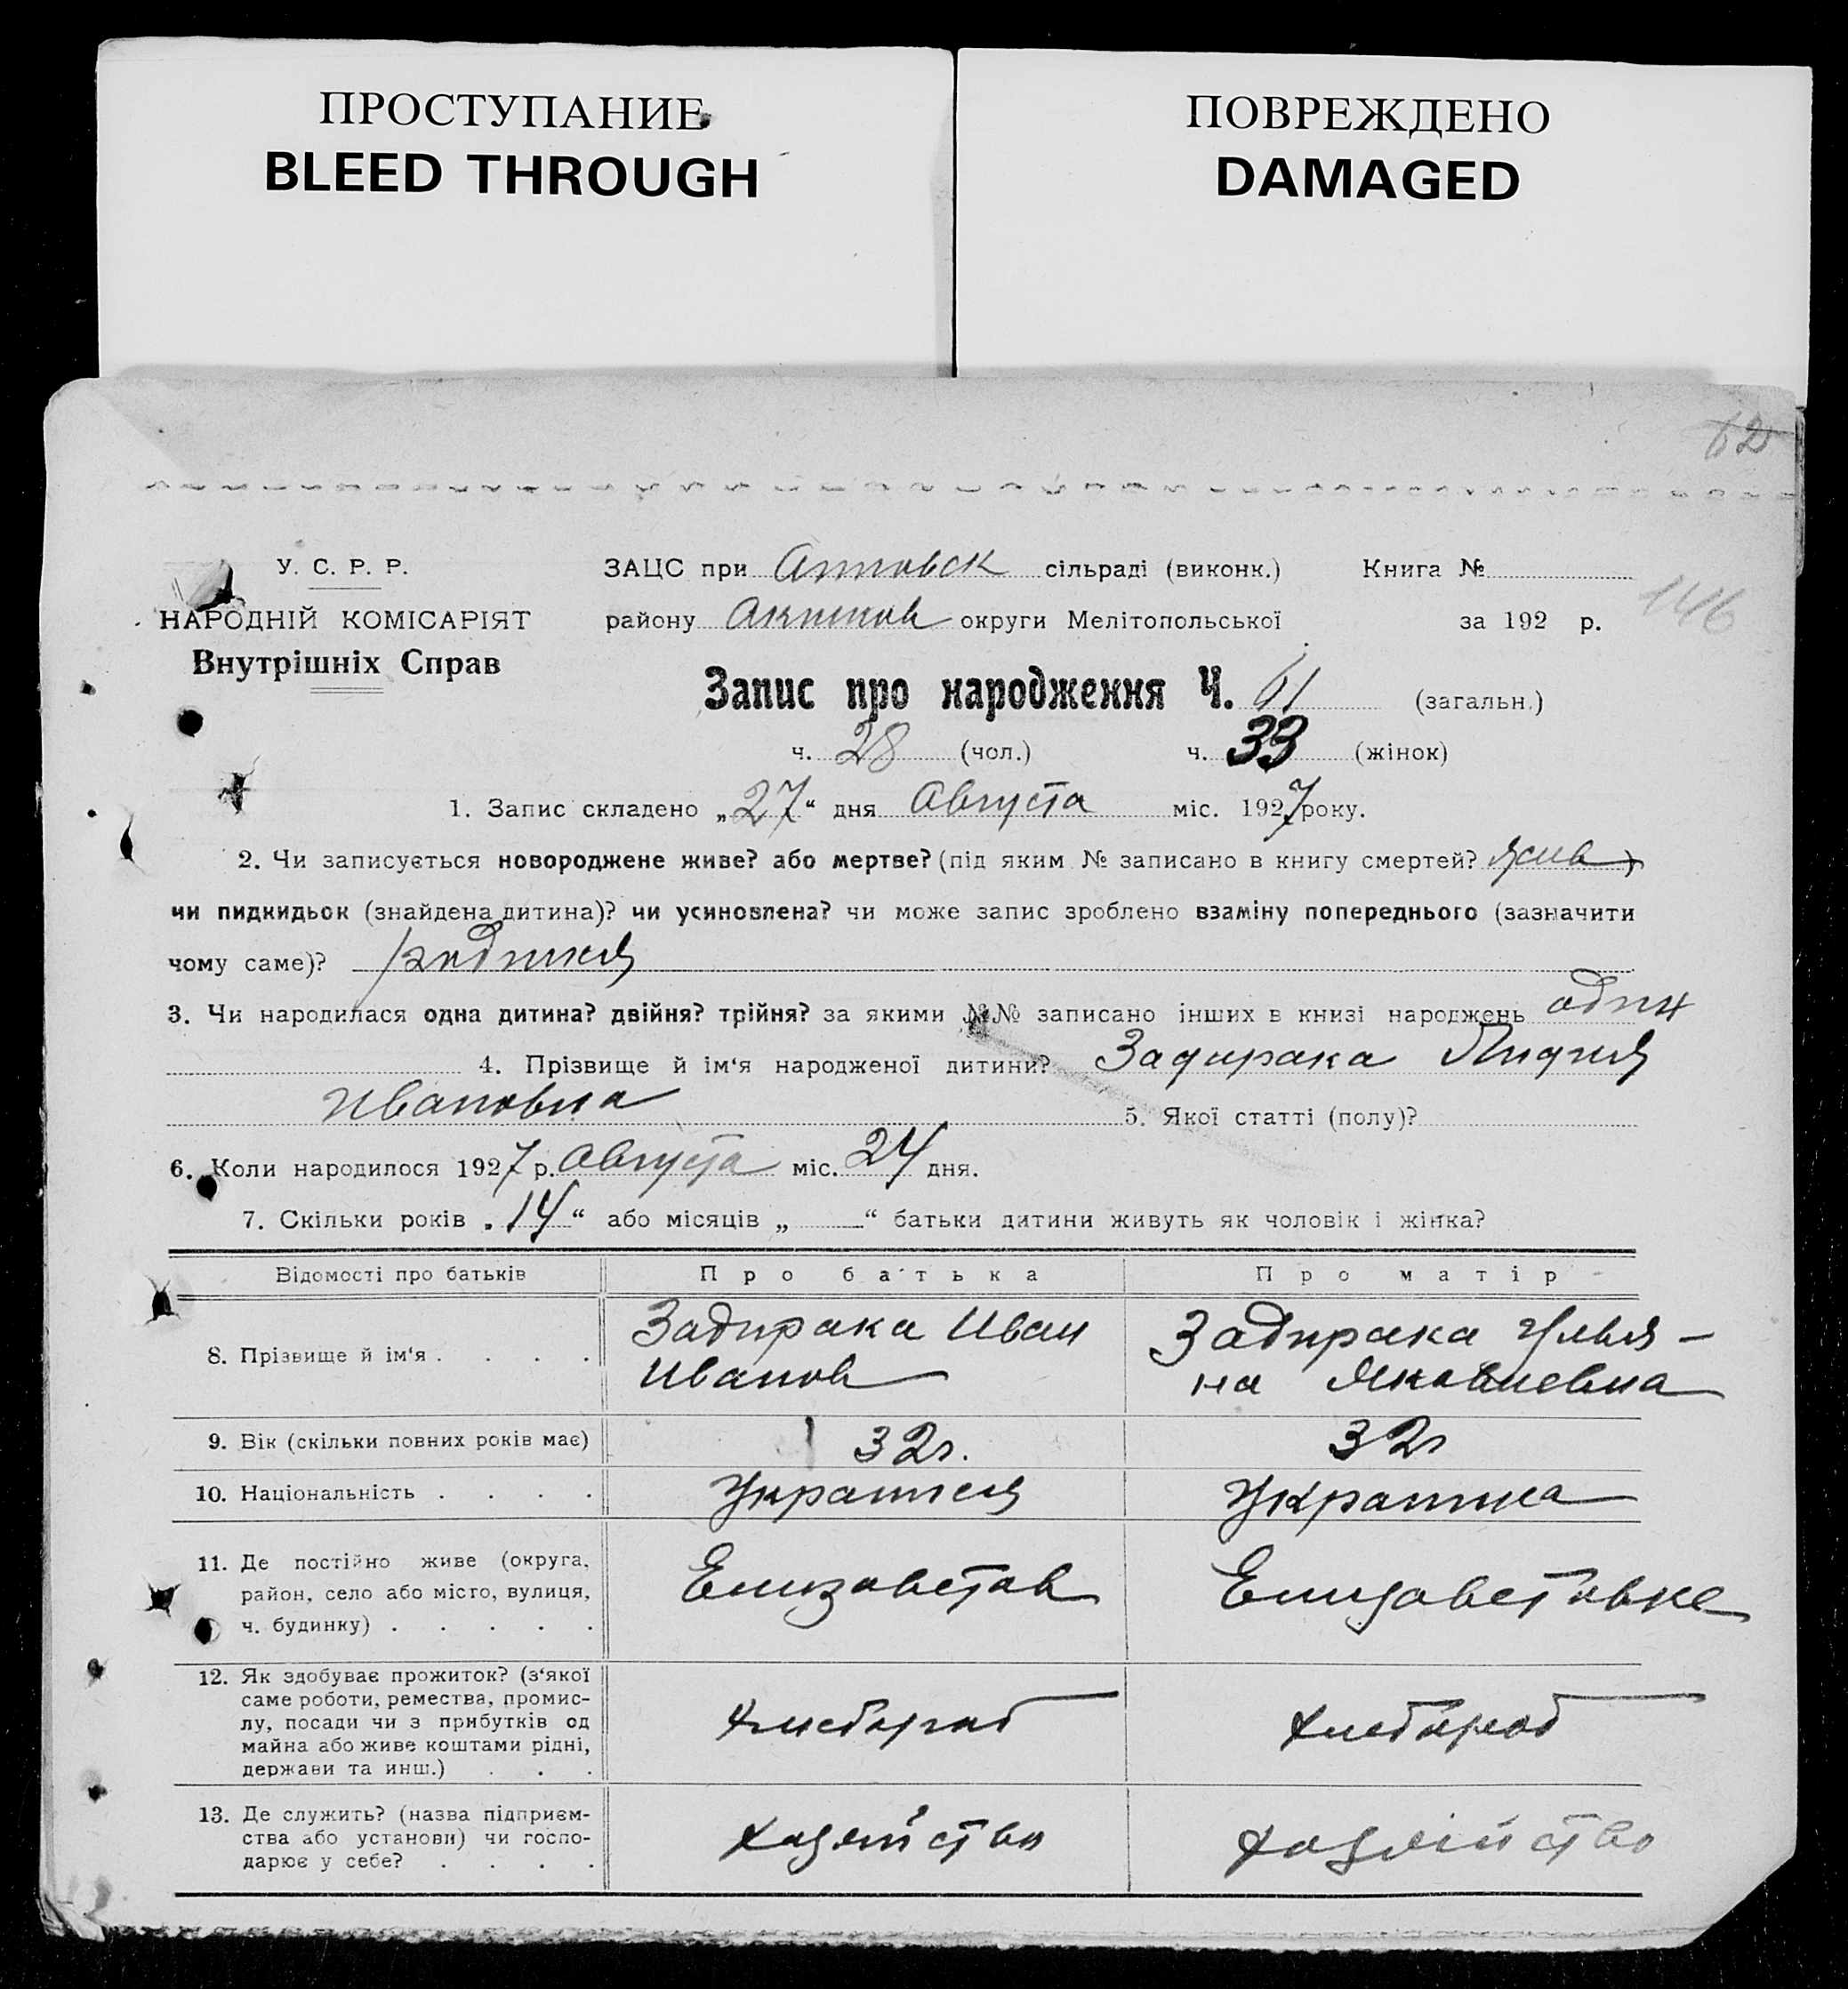 ПРОСТУПАНИЕ
BLEED THROUGH
ПОВРЕЖДЕНО
DAMAGED
62
У. С. Р. Р.
ЗАЦС при сільраді (виконк.) Книга №
146
НАРОДНІЙ КОМІСАРІЯТ
району Акимов округи Мелітопольської за 192 р.
Внутрішніх Справ
Запис про народження Ч. 61 (загальн.)
ч. 28 (чол.) ч. 33 (жінок)
1. Запис складено „27“ дня Августа міс. 1927 року.
2. Чи записується новороджене живе? або мертве? (під яким № записано в книгу смертей? жив)
чи пидкидьок (знайдена дитина)? чи усиновлена? чи може запис зроблено взаміну попереднього (зазначити
чому саме)?
3. Чи народилася одна дитина? двійня? трійня? за якими №№ записано інших в книзі народжень один
4. Прізвище й ім‘я народженої дитини? Задирака Лидия
Ивановна 5. Якої статті (полу)?
6. Коли народилося 1927 р. Августа міс. 24 дня.
7. Скільки років „14“ або місяців „ — “ батьки дитини живуть як чоловік і жінка?
Відомості про батьків Про батька Про матір
8. Прізвище й ім‘я . . . .
Задирака Иван
Иванов
Задирака Улья-
на Яковлевна
9. Вік (скільки повних років має) 32г. 32г
10. Національність . . . . Украинец Украинка
11. Де постійно живе (округа,
район, село або місто, вулиця,
ч. будинку) . . . . .
Елизаветов
Елизаветовке
12. Як здобуває прожиток? (з‘якої
саме роботи, ремества, промис-
лу, посади чи з прибутків од
майна або живе коштами рідні,
держави та инш.) . . .
хлебороб
хлебороб
13. Де служить? (назва підприєм-
ства або установи) чи госпо-
дарює у себе? . . . .
хозяйство
хозяйство